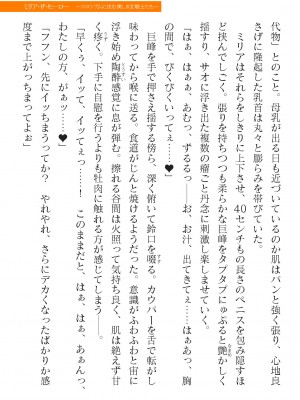 ミリア・ザ・ヒーロー
代物」とのこと。母乳が出る日も近づいているのか肌はパンと強く張り、心地良
さげに隆起した乳首は丸々と膨らみを帯びていた。
ミリアはそれらをしきりに上下させ、40センチもの長さのペニスを包み隠すほ
ど挟んでしごく。張りを持ちつつも柔らかな巨峰をタプタプにゅぷると艶かしく
揺すり、サオに浮き出た複数の瘤ごと丹念に刺激し楽しませていく。
「はぁ、はぁぁ、あむっ、ずるるっ――お、お汁、出てきてぇっ……はぁあっ、胸
の間で、びくびくいってぇっ…❤」
巨峰を手で押さえ揺する傍ら、深く俯いて鈴口を啜る。カウパーを舌で転がし
とことん味わってから喉に送る。食道がじんと焼けるようだった。意識がふわふわと宙に
浮き始め陶酔感覚に息が弾む。擦れる谷間は火照って気持ち良く、肌は絶えず甘
く疼く。下手に自慰を行うよりも牡肉に触れる方が感じてしまう――。
「早くぅ、イッて、イッてぇっ……！　このままだと、はぁ、はぁ、あぁんっ、
わたしの方、がぁっ……❤」
「フフン、先にイっちまうってか？　やれやれ、さらにデカくなったばかりか感
度まで上がっちまってよぉ」